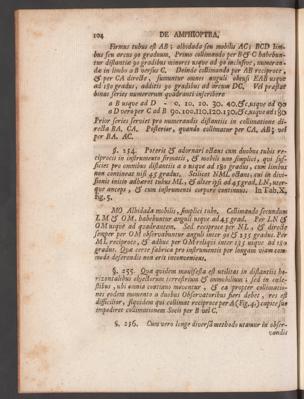 104 DE AMPHIOPTRA,
Firmus tubus est AB; alhidada seu mobilis AC; BCD limbus
seu arcus 90 graduum, Primo collimando per B & C habebun-
tur distantiæ 90 gradibus minores usque ad 90 inclusive, numeran-
da in limbo a B versus C. Deinde collimando per AB reciproce,
& per CA directe, sumuntur omnes anguli obtusi EAB usque
ad 180 gradus, additis 90 gradibus ad arcum DC. Vel præstat
binas series numerorum quadranti inseribere
a B usque ad D - 0, 10, 20, 30, 40, &c, usque ad 90
a D vero per C ad B 90, 100, 110, 120, 130, &c, usque ad 180
Prior series serviet pro numerandis distantiis in collimatione di-
recta BA, CA. Posterior, quando collimatur per CA, AB; vel
per BA, AC.
§. 254. Poterit & adornari octans cum duobus tubis re-
ciprocis in instrumento firmatis, & mobili uno simplici, qui suf-
ficiet pro omnibus distantiis a 0 usque ad 180 gradus, cum limbus
non contineat nisi 45 gradus. Scilicet NML octans, cui in divi-
sionis initio adhæret tubus ML, & alter ipsi ad 45 grad, LN, uter-
que anceps, & cum instrumenti corpore continuus. In Tab, X,
fig, 5,
MO Alhidada mobilis, simplici tubo, Collimando secundum
LM & OM, habebuntur anguli usque ad 45 grad. Per LN &
OM usque ad quadrantem. Sed reciproce per NL, & directe
semper per OM observabuntur anguli inter 90 & 135 gradus. Per
ML reciproce, & adhuc per OM reliqui inter 135 usque ad 180
gradus. Quæ certe fabrica pro instrumentis per longam viam com-
mode deferendis non erit inconveniens.
§. 255. Quæ quidem manifesta est utilitas in distantiis ho-
rizontalibus objectorum terrestrium & immobilium; sed in cœle-
stibus, ubi omnia continuo moventur, & ea propter collimatio-
nes eodem momento a duobus Observatoribus fieri debet, res est
difficilior, siquidem qui collimat reciproce per A (Fig, 4,) capite suo
impediret collimationem Socii per B vel C.
§. 256. Cum vero longe diversa methodo utamur in obser-
vandis